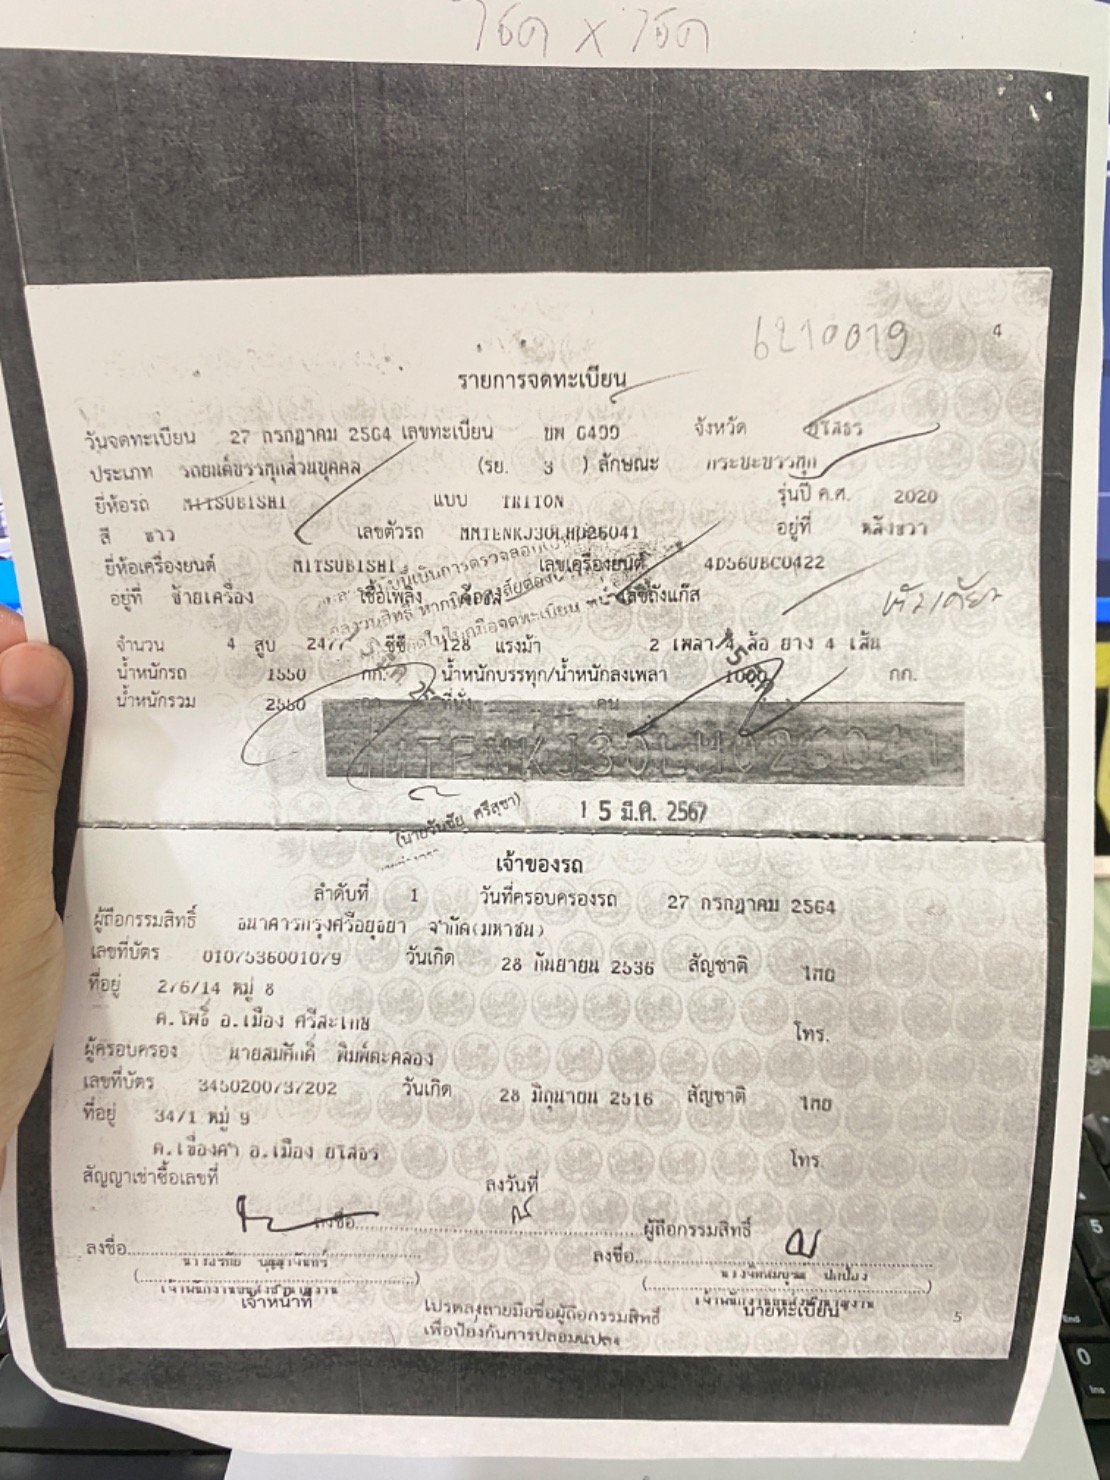 โชค x โชค
6210019
4
รายการจดทะเบียน
วันจดทะเบียน 27 กรกฎาคม 2564 เลขทะเบียน บพ 6499 จังหวัด ยโสธร
ประเภท รถยนต์บรรทุกส่วนบุคคล (รย. 3 ) ลักษณะ กระบะบรรทุก
ยี่ห้อรถ MITSUBISHI แบบ TRITON รุ่นปี ค.ศ. 2020
สี ขาว เลขตัวรถ MMTENKJ30LH026041 อยู่ที่ หลังขวา
ยี่ห้อเครื่องยนต์ MITSUBISHI เลขเครื่องยนต์ 4D56UBC0422
อยู่ที่ ซ้ายเครื่อง เชื้อเพลิง ดีเซล เลขถังแก๊ส
จำนวน 4 สูบ 2477 ซีซี 128 แรงม้า 2 เพลา 4 ล้อ ยาง 4 เส้น
น้ำหนักรถ 1550 กก. น้ำหนักบรรทุก/น้ำหนักลงเพลา 1000 กก.
น้ำหนักรวม 2550 กก. ที่นั่ง คน
MMTENKJ30LH026041
(นายวันชัย ศรีสุขา)
15 มี.ค. 2567
เจ้าของรถ
ลำดับที่ 1 วันที่ครอบครองรถ 27 กรกฎาคม 2564
ผู้ถือกรรมสิทธิ์ ธนาคารกรุงศรีอยุธยา จำกัด(มหาชน)
เลขที่บัตร 0107536001079 วันเกิด 28 กันยายน 2536 สัญชาติ ไทย
ที่อยู่ 276/14 หมู่ 8
ต.โพธิ์ อ.เมือง ศรีสะเกษ โทร.
ผู้ครอบครอง นายสมศักดิ์ พิมพ์ตะคลอง
เลขที่บัตร 3450200737202 วันเกิด 28 มิถุนายน 2516 สัญชาติ ไทย
ที่อยู่ 34/1 หมู่ 9
ต.เขื่องคำ อ.เมือง ยโสธร โทร.
สัญญาเช่าซื้อเลขที่ ลงวันที่
ลงชื่อ ผู้ถือกรรมสิทธิ์
ลงชื่อ ลงชื่อ
เจ้าพนักงานขนส่งชำนาญงาน เจ้าพนักงานขนส่งชำนาญงาน
เจ้าหน้าที่ นายทะเบียน
โปรดลงลายมือชื่อผู้ถือกรรมสิทธิ์
เพื่อป้องกันการปลอมแปลง
5